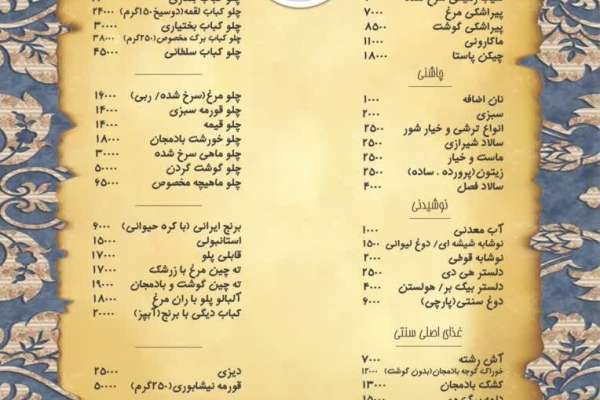 پیراشکی مرغ ۷۰۰۰
پیراشکی گوشت ۸۵۰۰
ماکارونی ۱۱۰۰۰
چیکن پاستا ۱۸۰۰۰
چاشنی
نان اضافه ۱۰۰۰
سبزی ۲۰۰۰
انواع ترشی و خیار شور ۲۵۰۰
سالاد شیرازی ۲۵۰۰
ماست و خیار ۲۵۰۰
زیتون(پرورده . ساده) ۲۵۰۰
سالاد فصل ۴۰۰۰
نوشیدنی
آب معدنی ۱۰۰۰
نوشابه شیشه ای/ دوغ لیوانی ۱۵۰۰
نوشابه قوطی ۲۰۰۰
دلستر هی دی ۲۵۰۰
دلستر بیک بر/ هولستن ۴۰۰۰
دوغ سنتی(پارچی) ۶۰۰۰
غذای اصلی سنتی
آش رشته ۷۰۰۰
خوراک گوجه بادمجان(بدون گوشت) ۱۲۰۰۰
کشک بادمجان ۱۳۰۰۰
چلو کباب لقمه(دوسیخ۱۵۰گرم) ۲۴۰۰۰
چلو کباب بختیاری ۳۰۰۰۰
چلو کباب برگ مخصوص(۲۵۰گرم) ۳۸۰۰۰
چلو کباب سلطانی ۴۵۰۰۰
چلو مرغ(سرخ شده/ ربی) ۱۶۰۰۰
چلو قورمه سبزی ۱۴۰۰۰
چلو قیمه ۱۴۰۰۰
چلو خورشت بادمجان ۱۸۰۰۰
چلو ماهی سرخ شده ۳۰۰۰۰
چلو گوشت گردن ۵۰۰۰۰
چلو ماهیچه مخصوص ۶۵۰۰۰
برنج ایرانی (با کره حیوانی) ۶۰۰۰
استانبولی ۱۵۰۰۰
قابلی پلو ۱۷۰۰۰
ته چین مرغ با زرشک ۱۷۰۰۰
ته چین گوشت و بادمجان ۱۹۰۰۰
آلبالو پلو با ران مرغ ۱۸۰۰۰
کباب دیگی با برنج(آبپز) ۲۰۰۰۰
دیزی ۲۵۰۰۰
قورمه نیشابوری(۲۵۰گرم) ۵۰۰۰۰